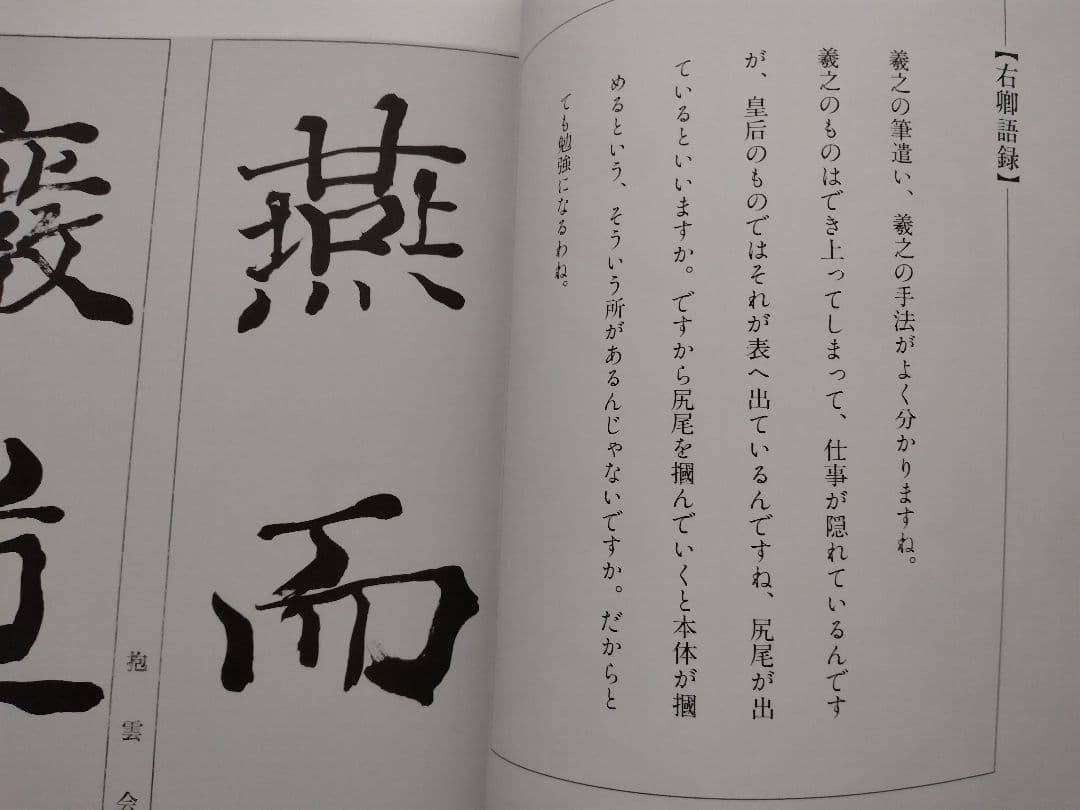 【右卿語録】
羲之の筆遣い、羲之の手法がよく分かりますね。
羲之のものはでき上ってしまって、仕事が隠れているんです
が、皇后のものではそれが表へ出ているんですね、尻尾が出
ているといいますか。ですから尻尾を摑んでいくと本体が摑
めるという、そういう所があるんじゃないですか。だからと
ても勉強になるわね。
燕而
抱雲会